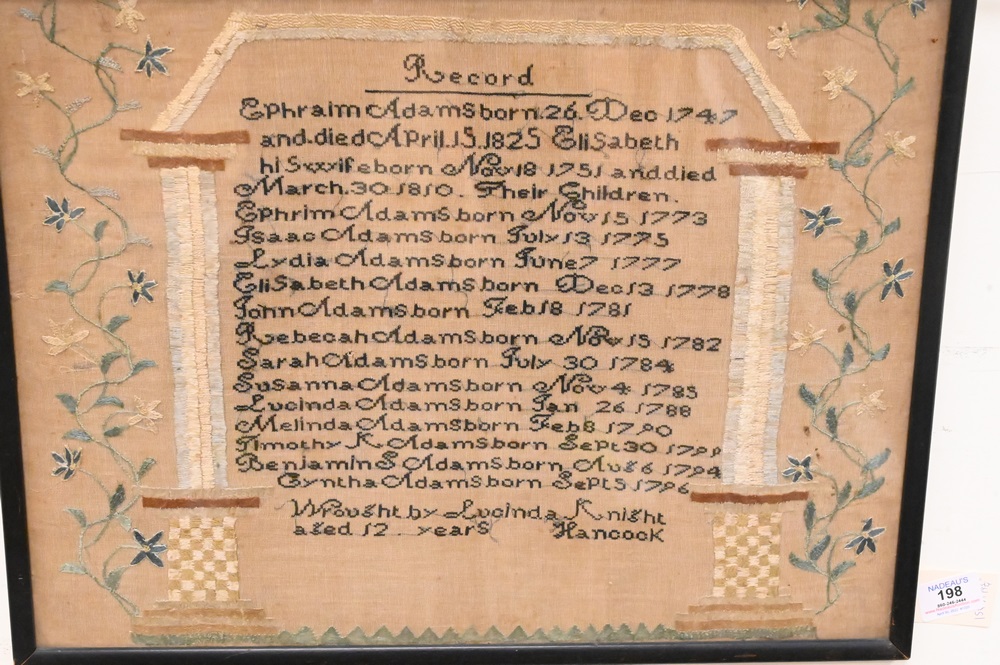 Record
Ephraim Adams born. 26. Dec 1747
and. died April. 15. 1825 Elisabeth
his wife born Nov 18 1751 and died
March. 30 1810. Their Children.
Ephrim Adams born Nov 15 1773
Isaac Adams born July 13 1775
Lydia Adams born June 7 1777
Elisabeth Adams born Dec 13 1778
John Adams born Feb 18 1781
Rebecah Adams born Nov 15 1782
Sarah Adams born July 30 1784
Susanna Adams born Nov 4 1785
Lucinda Adams born Jan 26 1788
Melinda Adams born Feb 8 1790
Timothy K Adams born Sept 30
Benjamin S Adams born Aug 6 1794
Cyntha Adams born Sept 5 1796
Wrought by Lucinda Knight
aged 12 years Hancock
NADEAU'S
198
860-246-2444